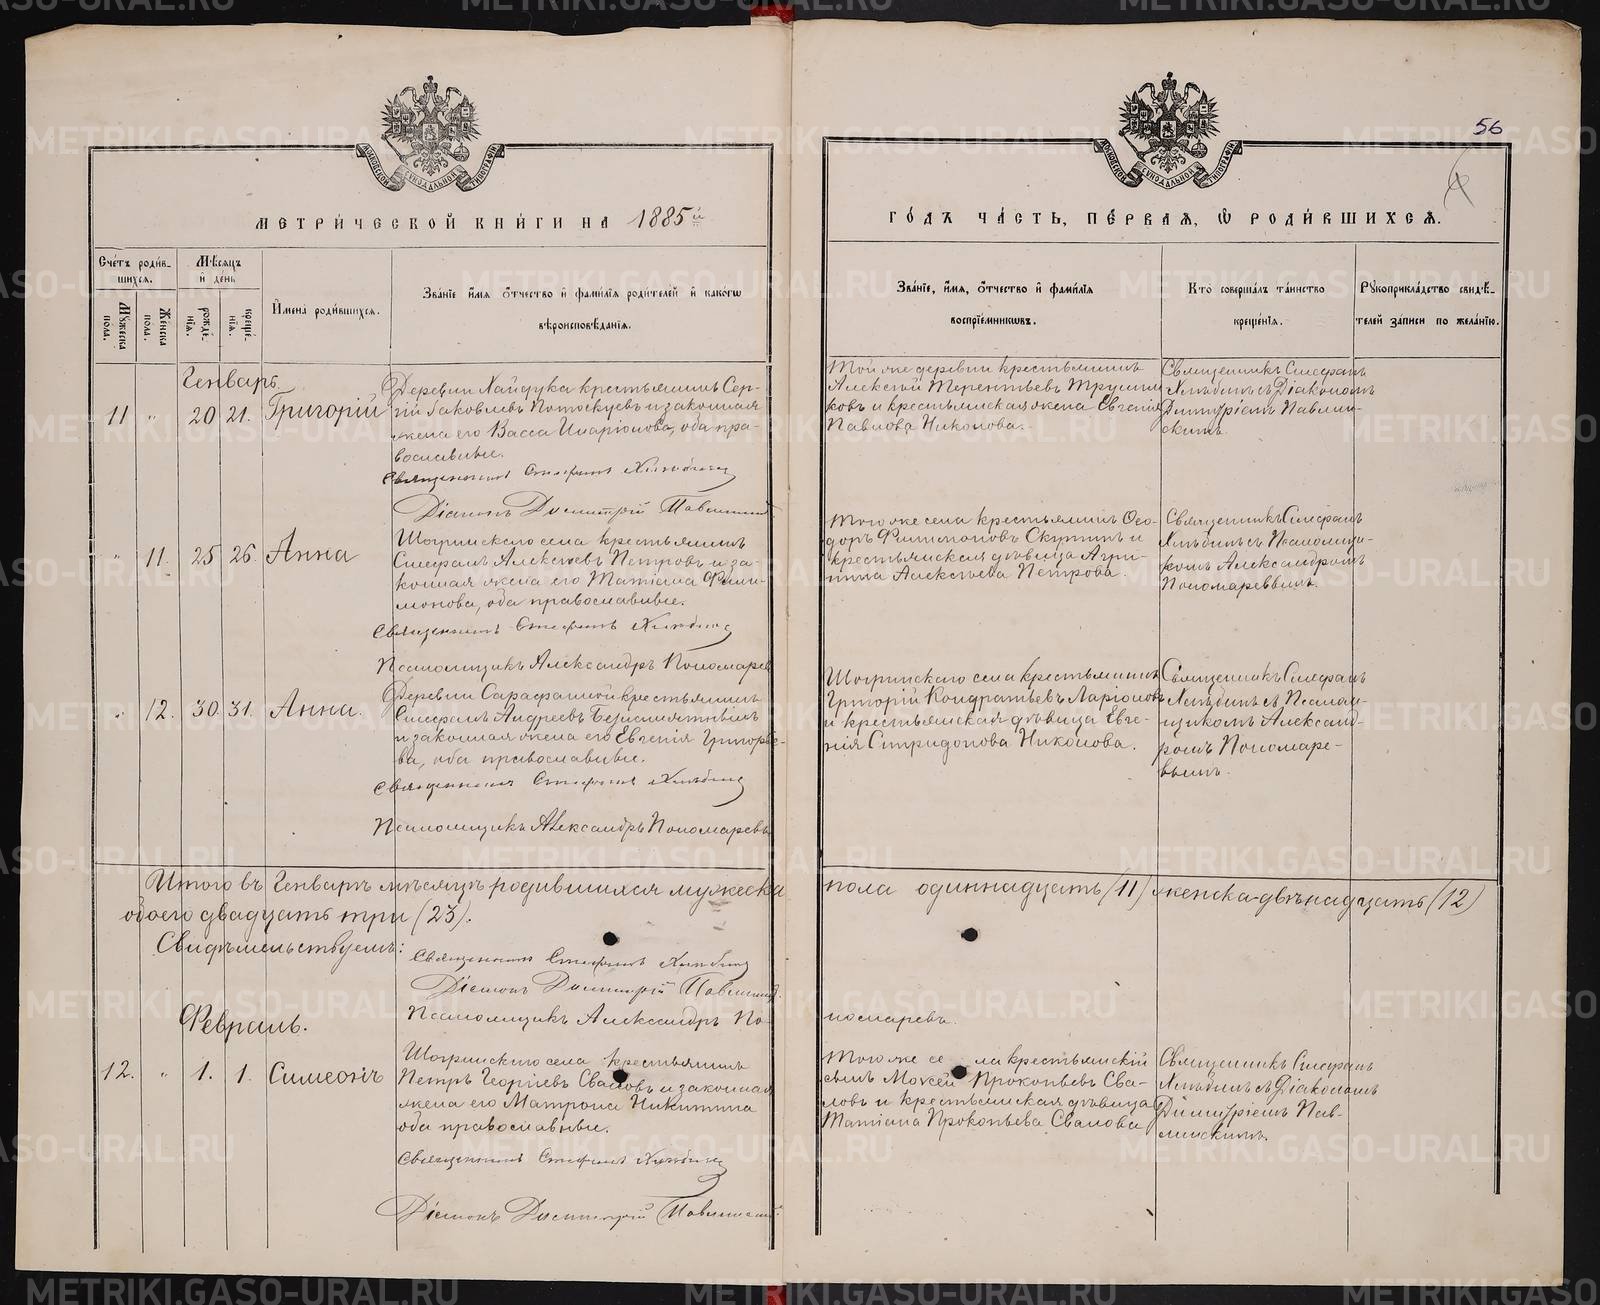 56
МОСКОВСКОЙ СѴНОДАЛЬНОЙ ТИПОГРАФІИ
МОСКОВСКОЙ СѴНОДАЛЬНОЙ ТИПОГРАФІИ
МЕТРИ́ЧЕСКОЙ КНИ́ГИ НА 1885й
ГО́ДЪ ЧА́СТЬ, ПЕ́РВАЯ, Ѡ РОДИ́ВШИХСѦ.
Сче́тъ роди́в-
шихсѧ.
Мꙋжеска пола.
Женска пола.
Мѣ́сяцъ
и҆ де́нь
рожде́-
нїѧ.
креще́-
нїѧ.
И҆мена роди́вшихсѧ.
Зва́нїе и҆мѧ ѻ҆́тчество и҆ фами́лїѧ роди́телей и҆ како́гѡ
вѣроисповѣ́данїѧ.
Зва́нїе, и҆́мѧ, ѻ҆́тчество и҆ фами́лїѧ
воспрїе́мникѡвъ.
Кто̀ соверша́лъ та́инство
креще́нїѧ.
Рꙋкоприкла́дство свидѣ́-
телей за́писи по жела́нїю.
Генварь
11 " 20 21. Григорій
Деревни Хайдука крестьянинъ Сер-
гій Іаковлевъ Потоскуевъ и законная
жена его Васса Иларіонова, оба пра-
вославные.
Священникъ Стефанъ Хлѣбинъ
Діаконъ Димитрій Павлинскій
Той же деревни крестьянинъ
Алексѣй Терентьевъ Трушни
ковъ и крестьянская жена Евгенія
Павлова Никонова.
Священникъ Стефанъ
Хлѣбинъ съ Діакономъ
Димитріемъ Павлин-
скимъ.
" 11. 25 26. Анна
Шогринскаго села крестьянинъ
Стефанъ Алексѣевъ Петровъ и за-
конная жена его Татіана Фили-
монова, оба православные.
Священникъ Стефанъ Хлѣбинъ
Псаломщикъ Александръ Пономаревъ
Того же села крестьянинъ Ѳео-
доръ Филимоновъ Скутинъ и
крестьянская дѣвица Агри-
пина Алексѣева Петрова.
Священникъ Стефанъ
Хлѣбинъ съ Псаломщи-
комъ Александромъ
Пономаревымъ.
" 12. 30. 31. Анна.
Деревни Сарафанной крестьянинъ
Стефанъ Андреевъ Безпамятныхъ
и законная жена его Евгенія Григорье-
ва, оба православные.
Священникъ Стефанъ Хлѣбинъ
Псаломщикъ Александръ Пономаревъ
Шогринскаго села крестьянинъ
Григорій Кондратьевъ Ларіоновъ
и крестьянская дѣвица Евге-
нія Спиридонова Никонова.
Священникъ Стефанъ
Хлѣбинъ съ Псалом-
щикомъ Александ-
ромъ Пономаре-
вымъ.
Итого въ Генварѣ мѣсяцѣ родившихся мужеска
пола одиннадцать (11) женска-двѣнадцать (12)
обоего двадцать три (23).
Свидѣтельствуемъ:
Священникъ Стефанъ Хлѣбинъ
Діаконъ Димитрій Павлинскій.
Псаломщикъ Александръ По-
номаревъ.
Февраль.
12. " 1. 1. Симеонъ
Шогринскаго села крестьянинъ
Петръ Георгіевъ Сваловъ и законная
жена его Матрона Никитина
оба православные.
Священникъ Стефанъ Хлѣбинъ
Діаконъ Димитрій Павлинскій
Того же села крестьянскій
сынъ Моксей Прокопьевъ Сва-
ловъ и крестьянская дѣвица
Татіана Прокопьева Свалова
Священникъ Стефанъ
Хлѣбинъ съ Діакономъ
Димитріемъ Пав-
линскимъ.
METRIKI.GASO-URAL.RU